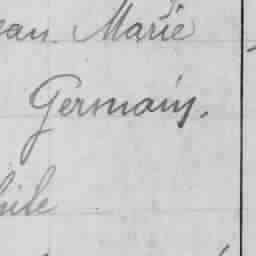 ean Marie
Germain,
hile